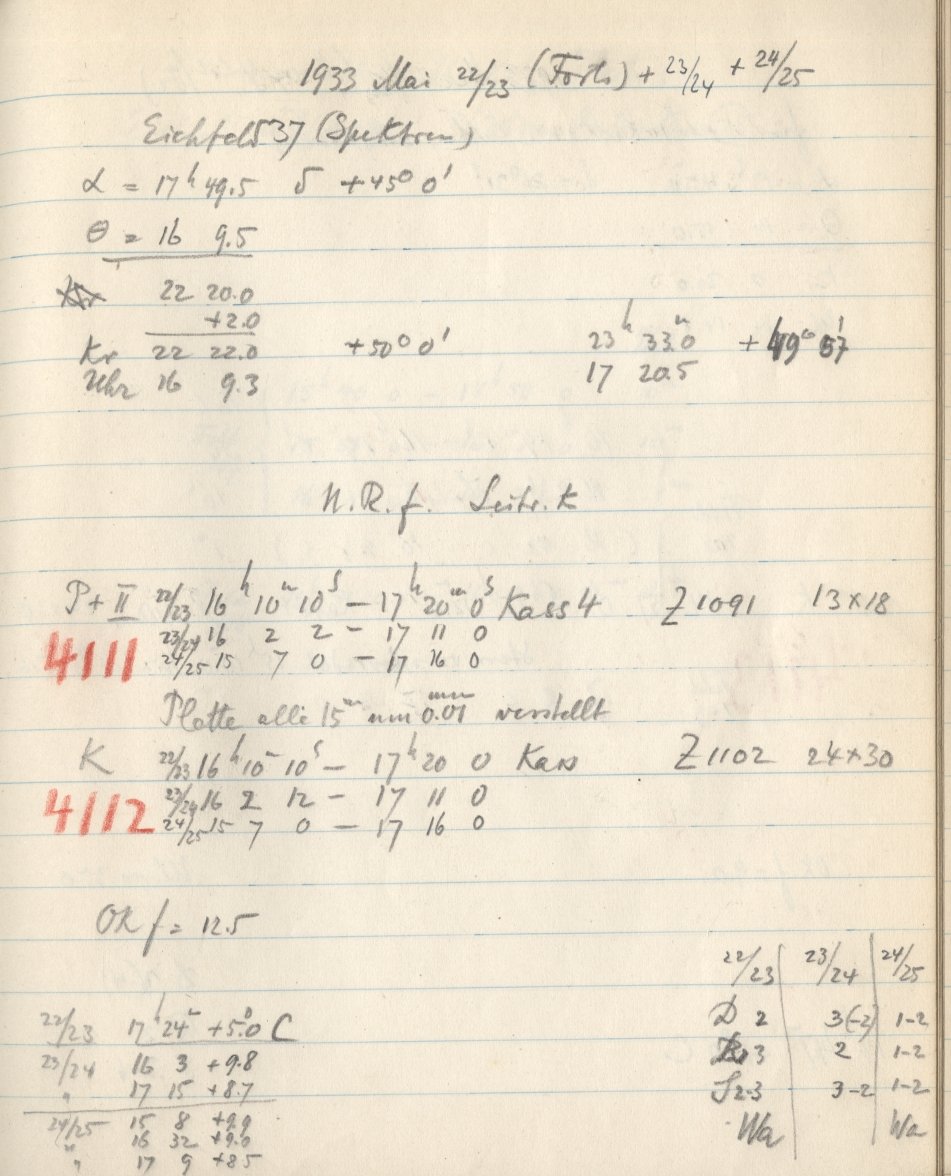 1933 Mai 22/23 (Forts) + 23/24 + 24/25
Eichfeld 37 (Spektren)
α = 17h 49.5 δ +45° 0'
θ = 16 9.5
22 20.0
+2.0
Kr 22 22.0 +50° 0' 23h 33.0m +49° 57'
Uhr 16 9.3 17 20.5
N.R.f. Leitr. K
P+II 22/23 16h 10m 10s – 17h 20m 0s Kass 4 Z 1091 13×18
4111 23/24 16 2 2 – 17 11 0
24/25 15 7 0 – 17 16 0
Platte alle 15m um 0.01mm verstellt
K 22/23 16h 10m 10s – 17h 20 0 Kass Z 1102 24×30
4112 23/24 16 2 12 – 17 11 0
24/25 15 7 0 – 17 16 0
OR f = 12.5
22/23 23/24 24/25
22/23 17h 24m +5.0° C D 2 3(-2) 1-2
23/24 16 3 +9.8 3 2 1-2
" 17 15 +8.7 S 2-3 3-2 1-2
24/25 15 8 +9.9 Wa Wa
" 16 32 +9.0
" 17 9 +8.5